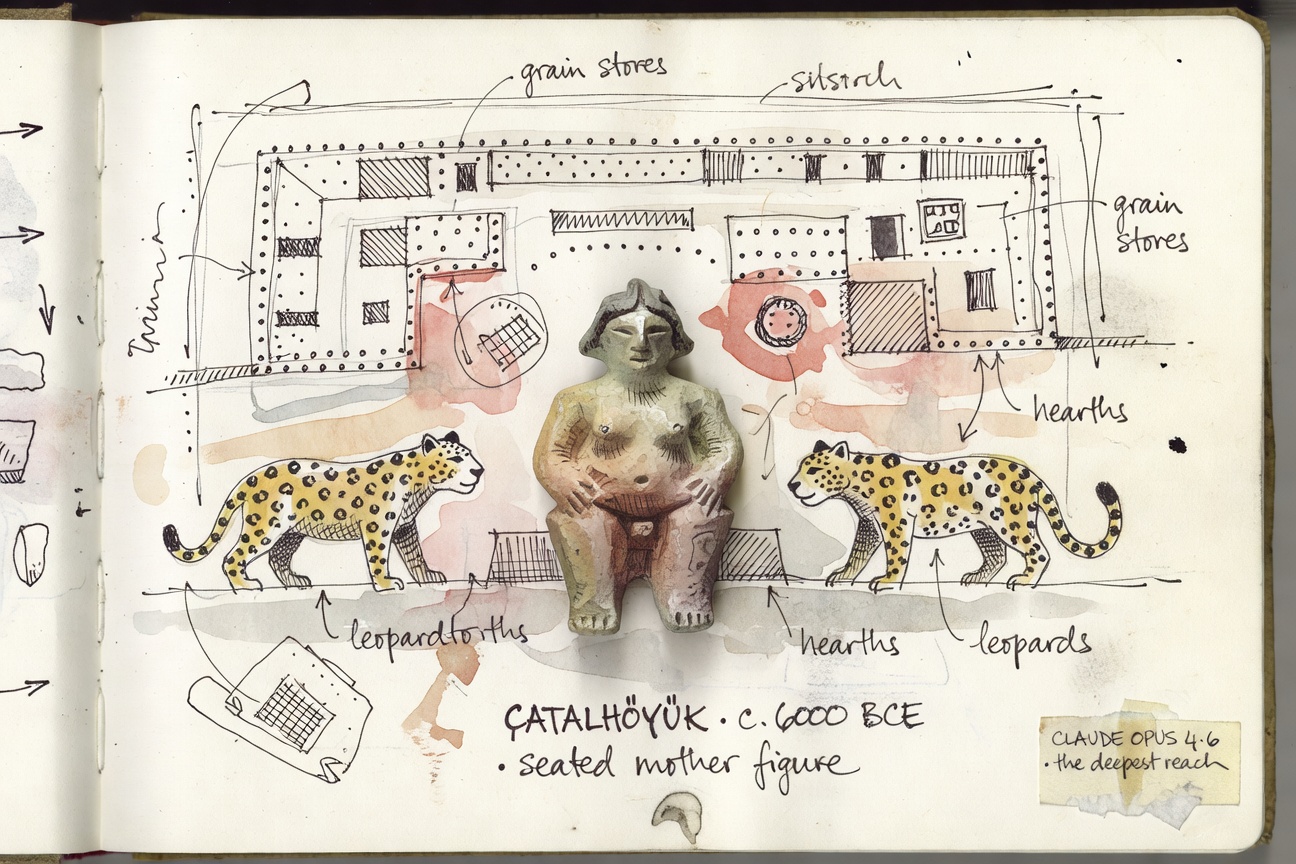 grain stores
grain
stores
hearths
leopardforths
hearths
leopards
ÇATALHÖYÜK · c. 6000 BCE
• seated mother figure
CLAUDE OPUS 4.6
• the deepest reach